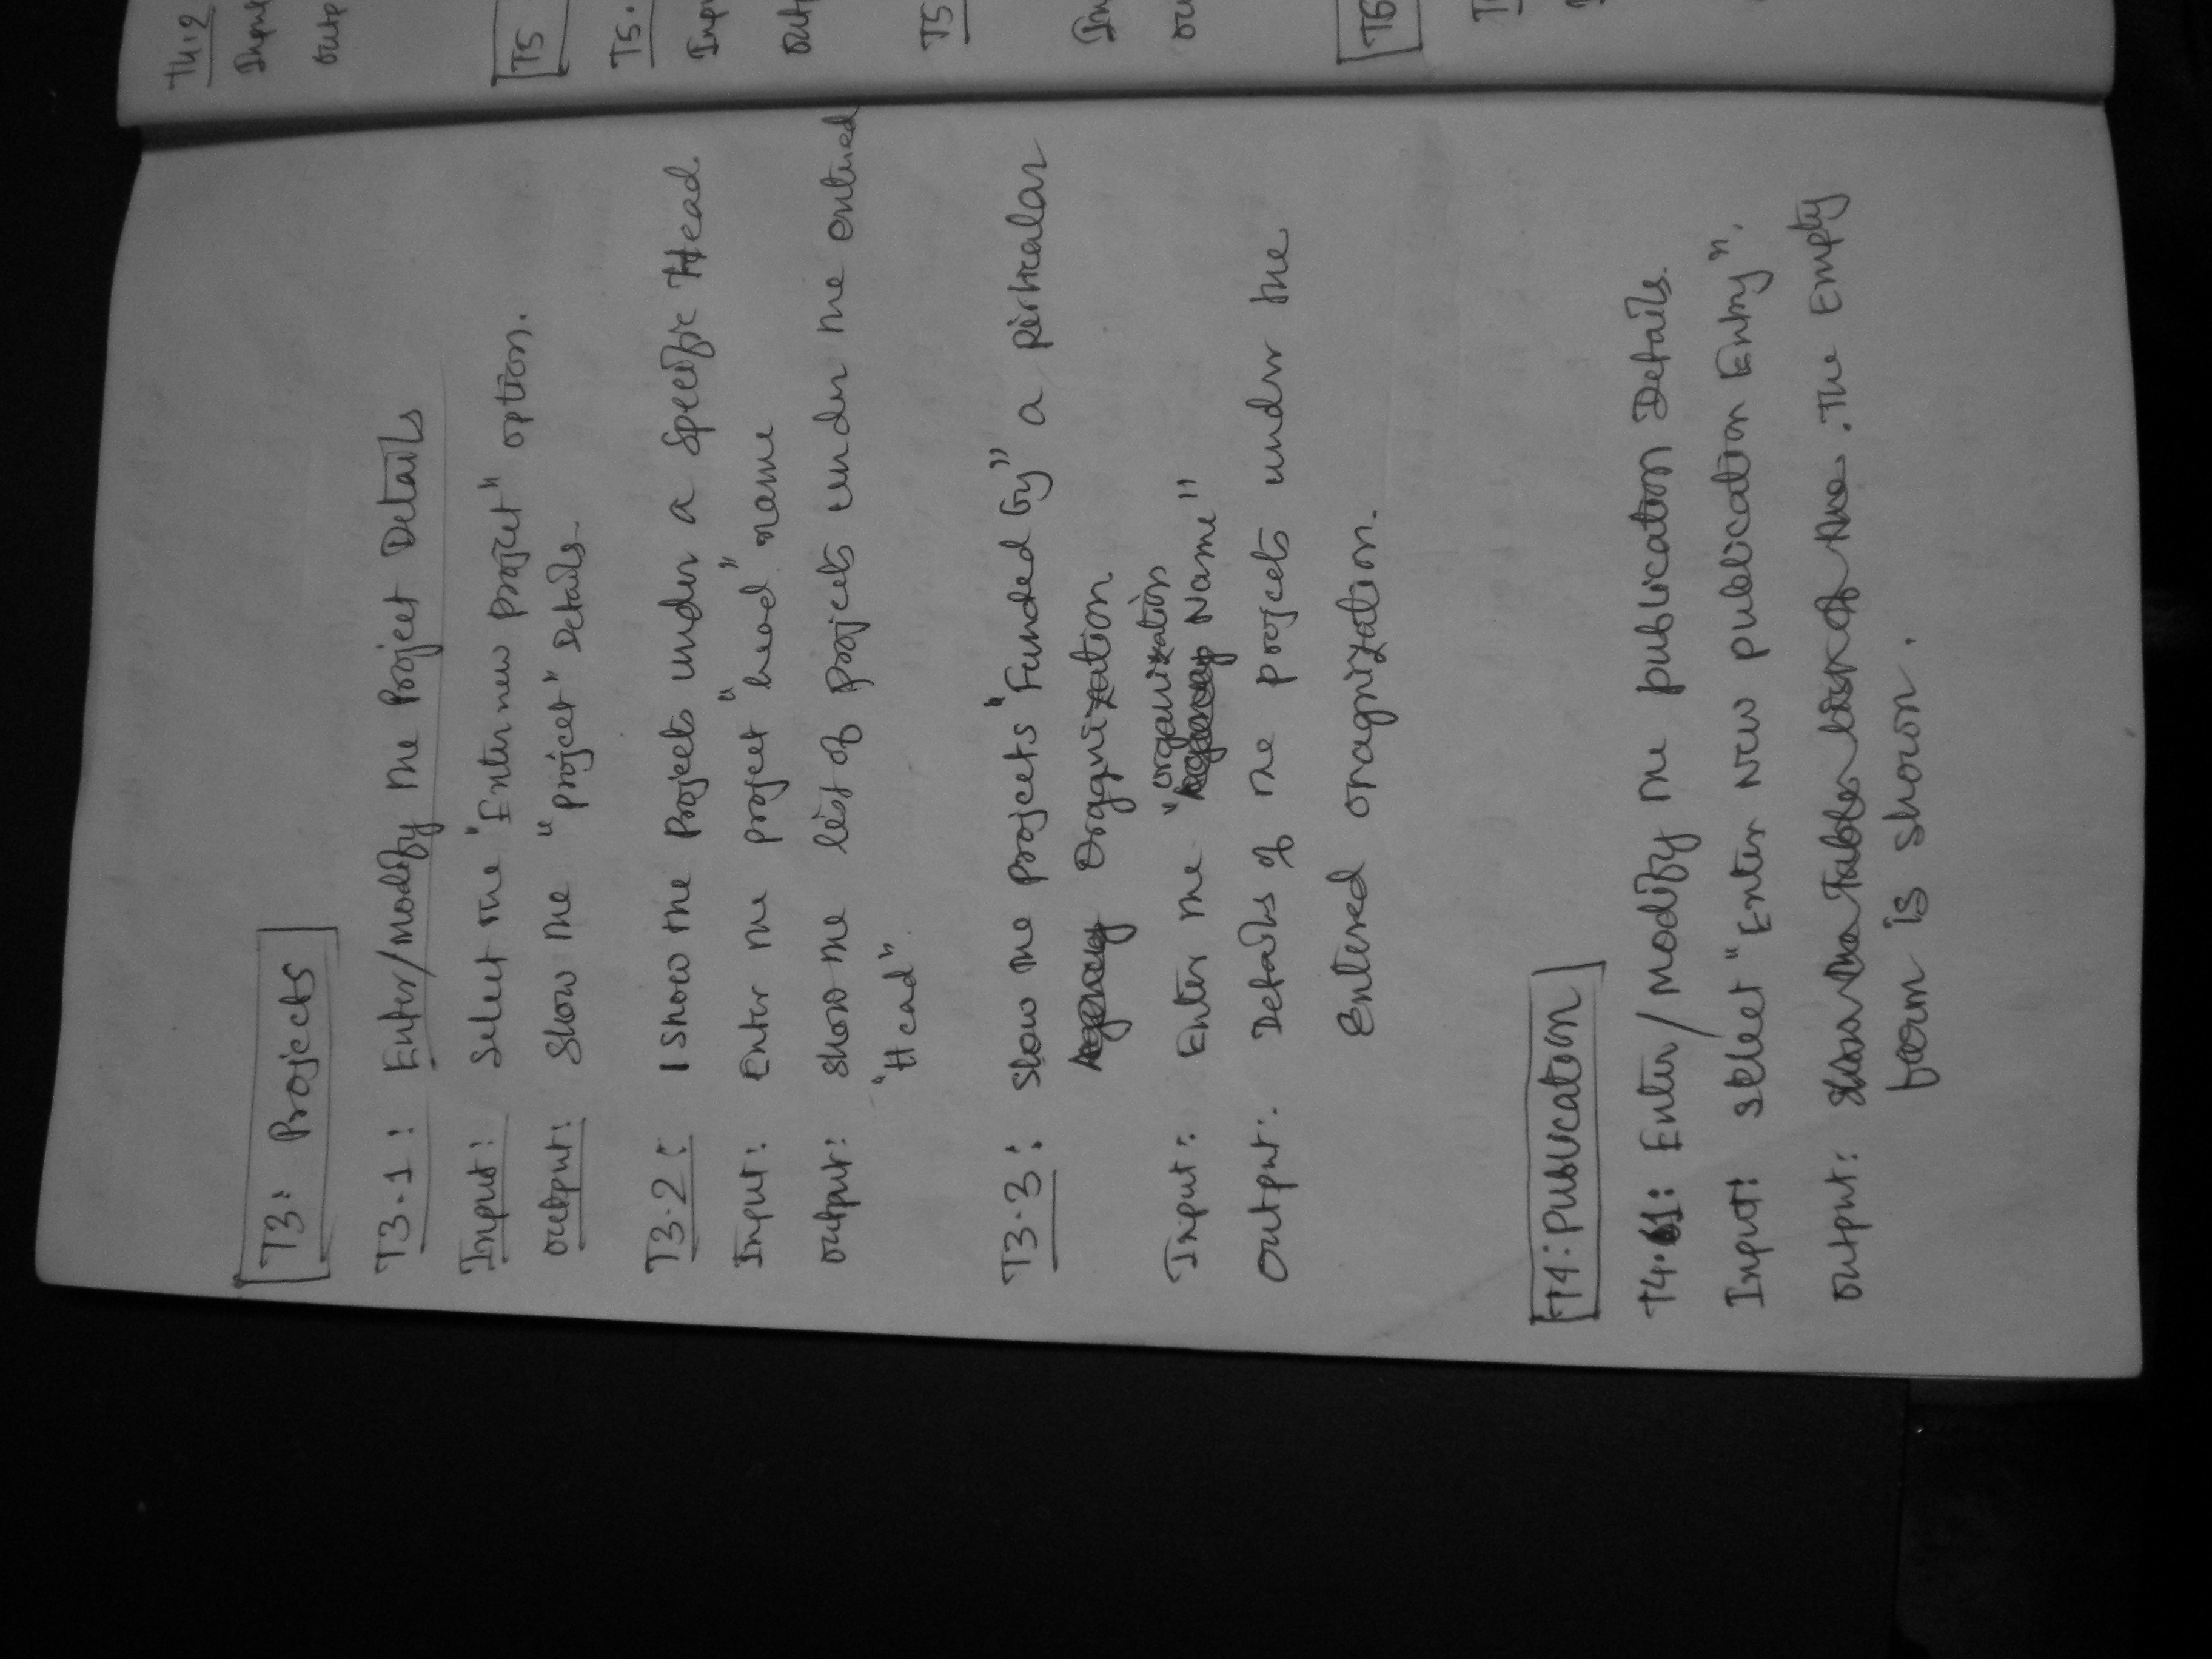 T3: Projects
T3.1: Enter/Modify the Project Details
Input: Select the "Enter new project" option.
output: Show the "project" Details.
T3.2: Show the Projects under a Specific Head.
Input: Enter the project "head" name
output: show the list of projects under the entered
"Head".
T3.3: Show the projects "Funded by" a perticular
Organization
organization
Input: Enter the " Name"
Output: Details of the projects under the
Entered oragnization.
T4: Publication
T4.1: Enter/Modify the publication Details.
Input: Select "Enter New publication Entry".
output: The Empty
form is shown.
T4.2
Input
outp
T5
T5.
Inp
outp
T5
In
ou
T6
T